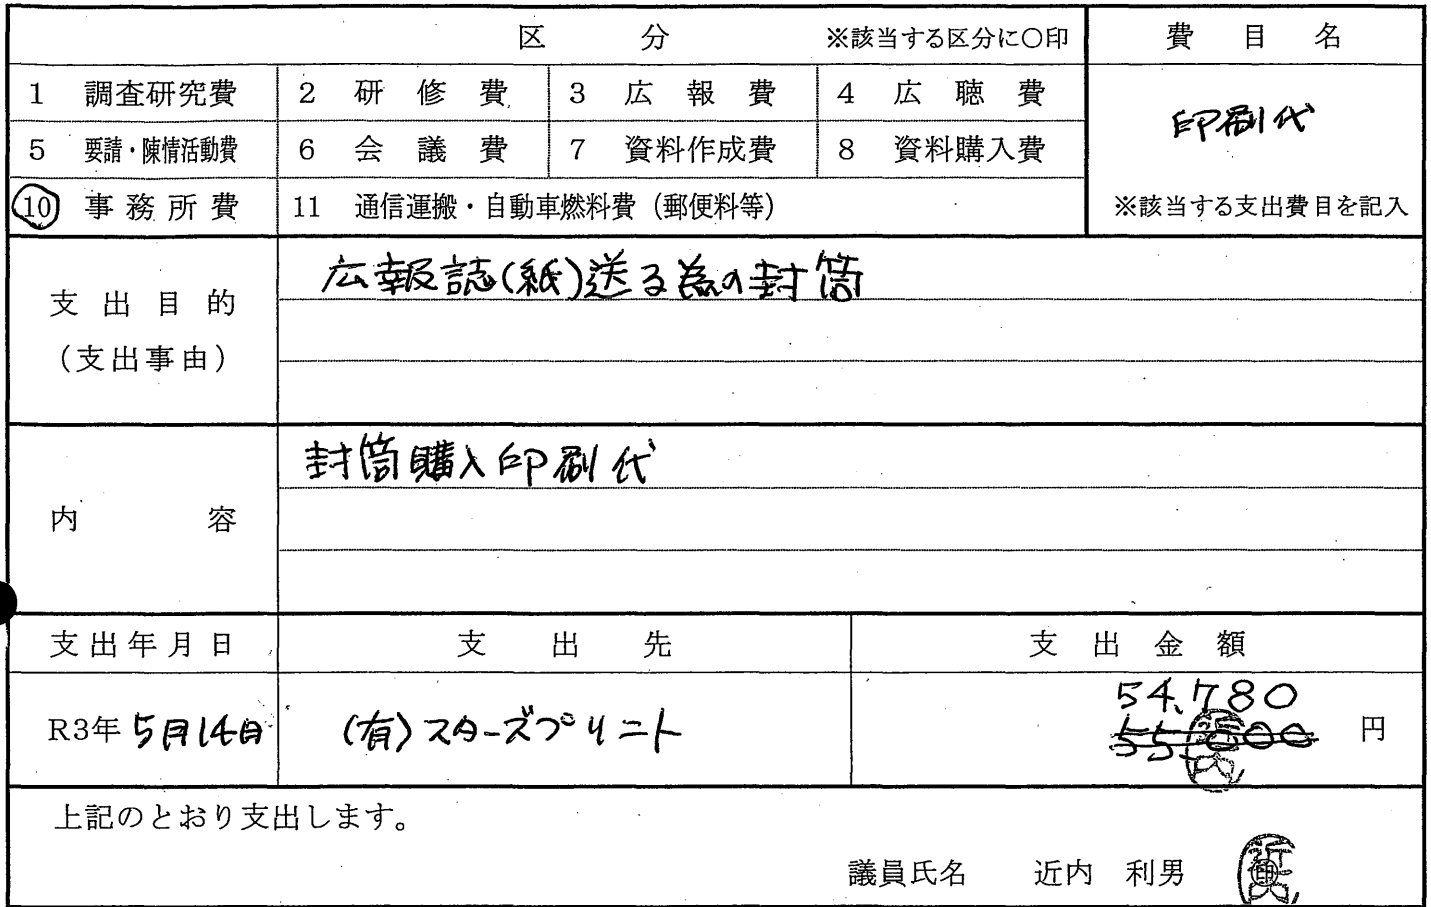 区 分 ※該当する区分に○印 費 目 名
1 調査研究費 2 研 修 費 3 広 報 費 4 広 聴 費
印刷代
5 要請・陳情活動費 6 会 議 費 7 資料作成費 8 資料購入費
10 事務所費 11 通信運搬・自動車燃料費(郵便料等) ※該当する支出費目を記入
広報誌(紙)送る為の封筒
支出目的
(支出事由)
封筒購入印刷代
内 容
支出年月日 支 出 先 支 出 金 額
54,780
R3年5月14日 (有)スターズプリント 55,000 円
上記のとおり支出します。
議員氏名 近内 利男